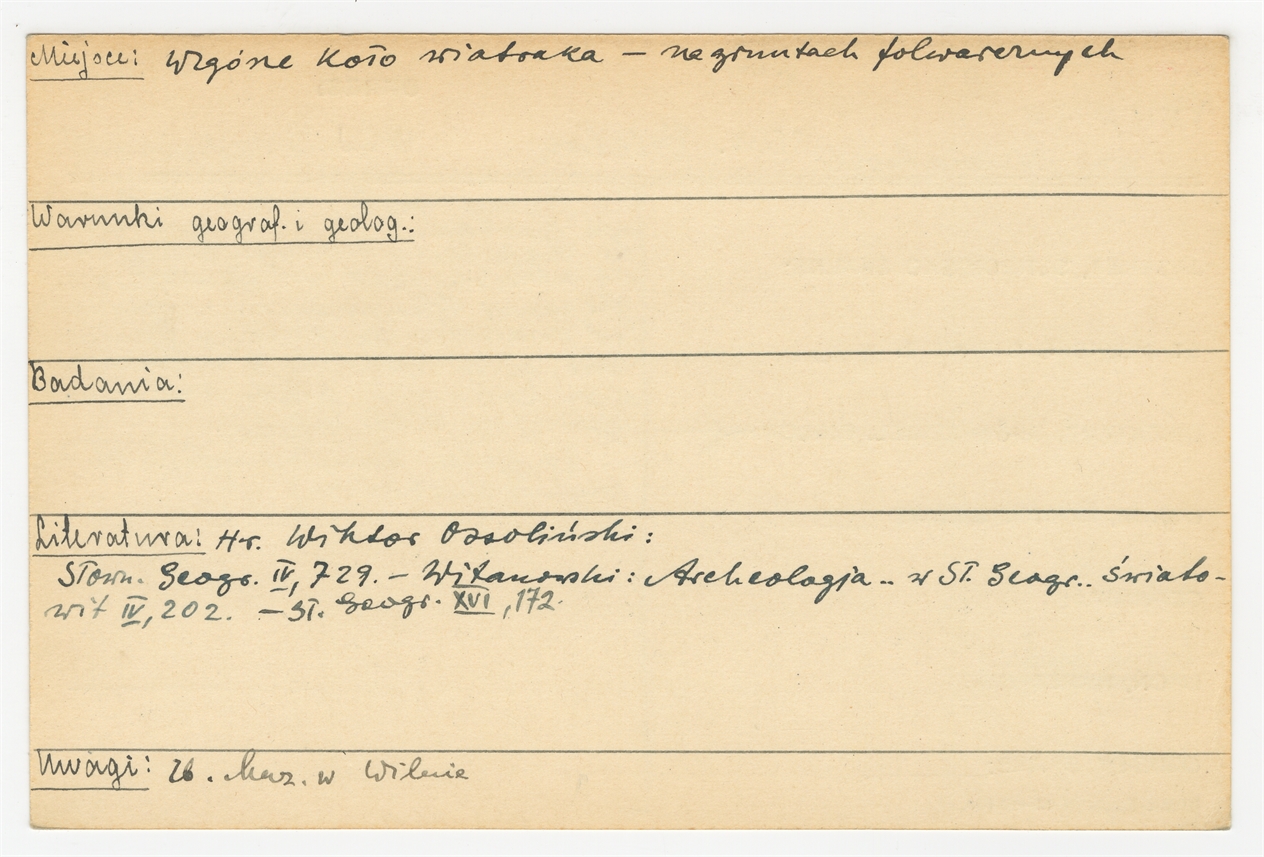 Miejsce: Wzgórze koło wiatraka – na gruntach folwarcznych
Warunki geograf. i geolog.:
Badania:
Literatura: Hr. Wiktor Ossoliński:
Słown. Geogr. IV, 729. – Witanowski: Archeologja .. w Sł. Geogr.. Świato-
wit IV, 202. – Sł. Geogr. XVI, 172.
Uwagi: Zb. Muz. w Wilnie